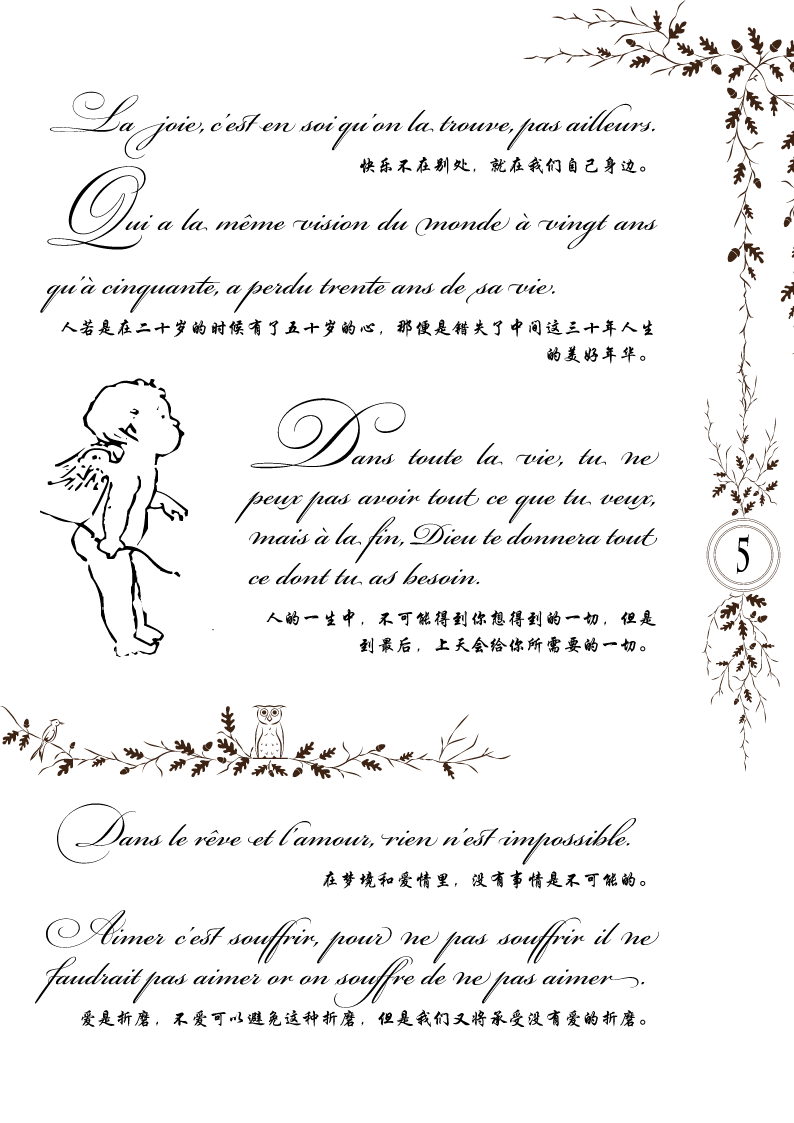 La joie, c'est en soi qu'on la trouve, pas ailleurs.
快乐不在别处，就在我们自己身边。
Qui a la même vision du monde à vingt ans
qu'à cinquante, a perdu trente ans de sa vie.
人若是在二十岁的时候有了五十岁的心，那便是错失了中间这三十年人生
的美好年华。
Dans toute la vie, tu ne
peux pas avoir tout ce que tu veux,
mais à la fin, Dieu te donnera tout
ce dont tu as besoin.
人的一生中，不可能得到你想得到的一切，但是
到最后，上天会给你所需要的一切。
5
Dans le rêve et l'amour, rien n'est impossible.
在梦境和爱情里，没有事情是不可能的。
Aimer c'est souffrir, pour ne pas souffrir il ne
faudrait pas aimer or on souffre de ne pas aimer.
爱是折磨，不爱可以避免这种折磨，但是我们又将承受没有爱的折磨。